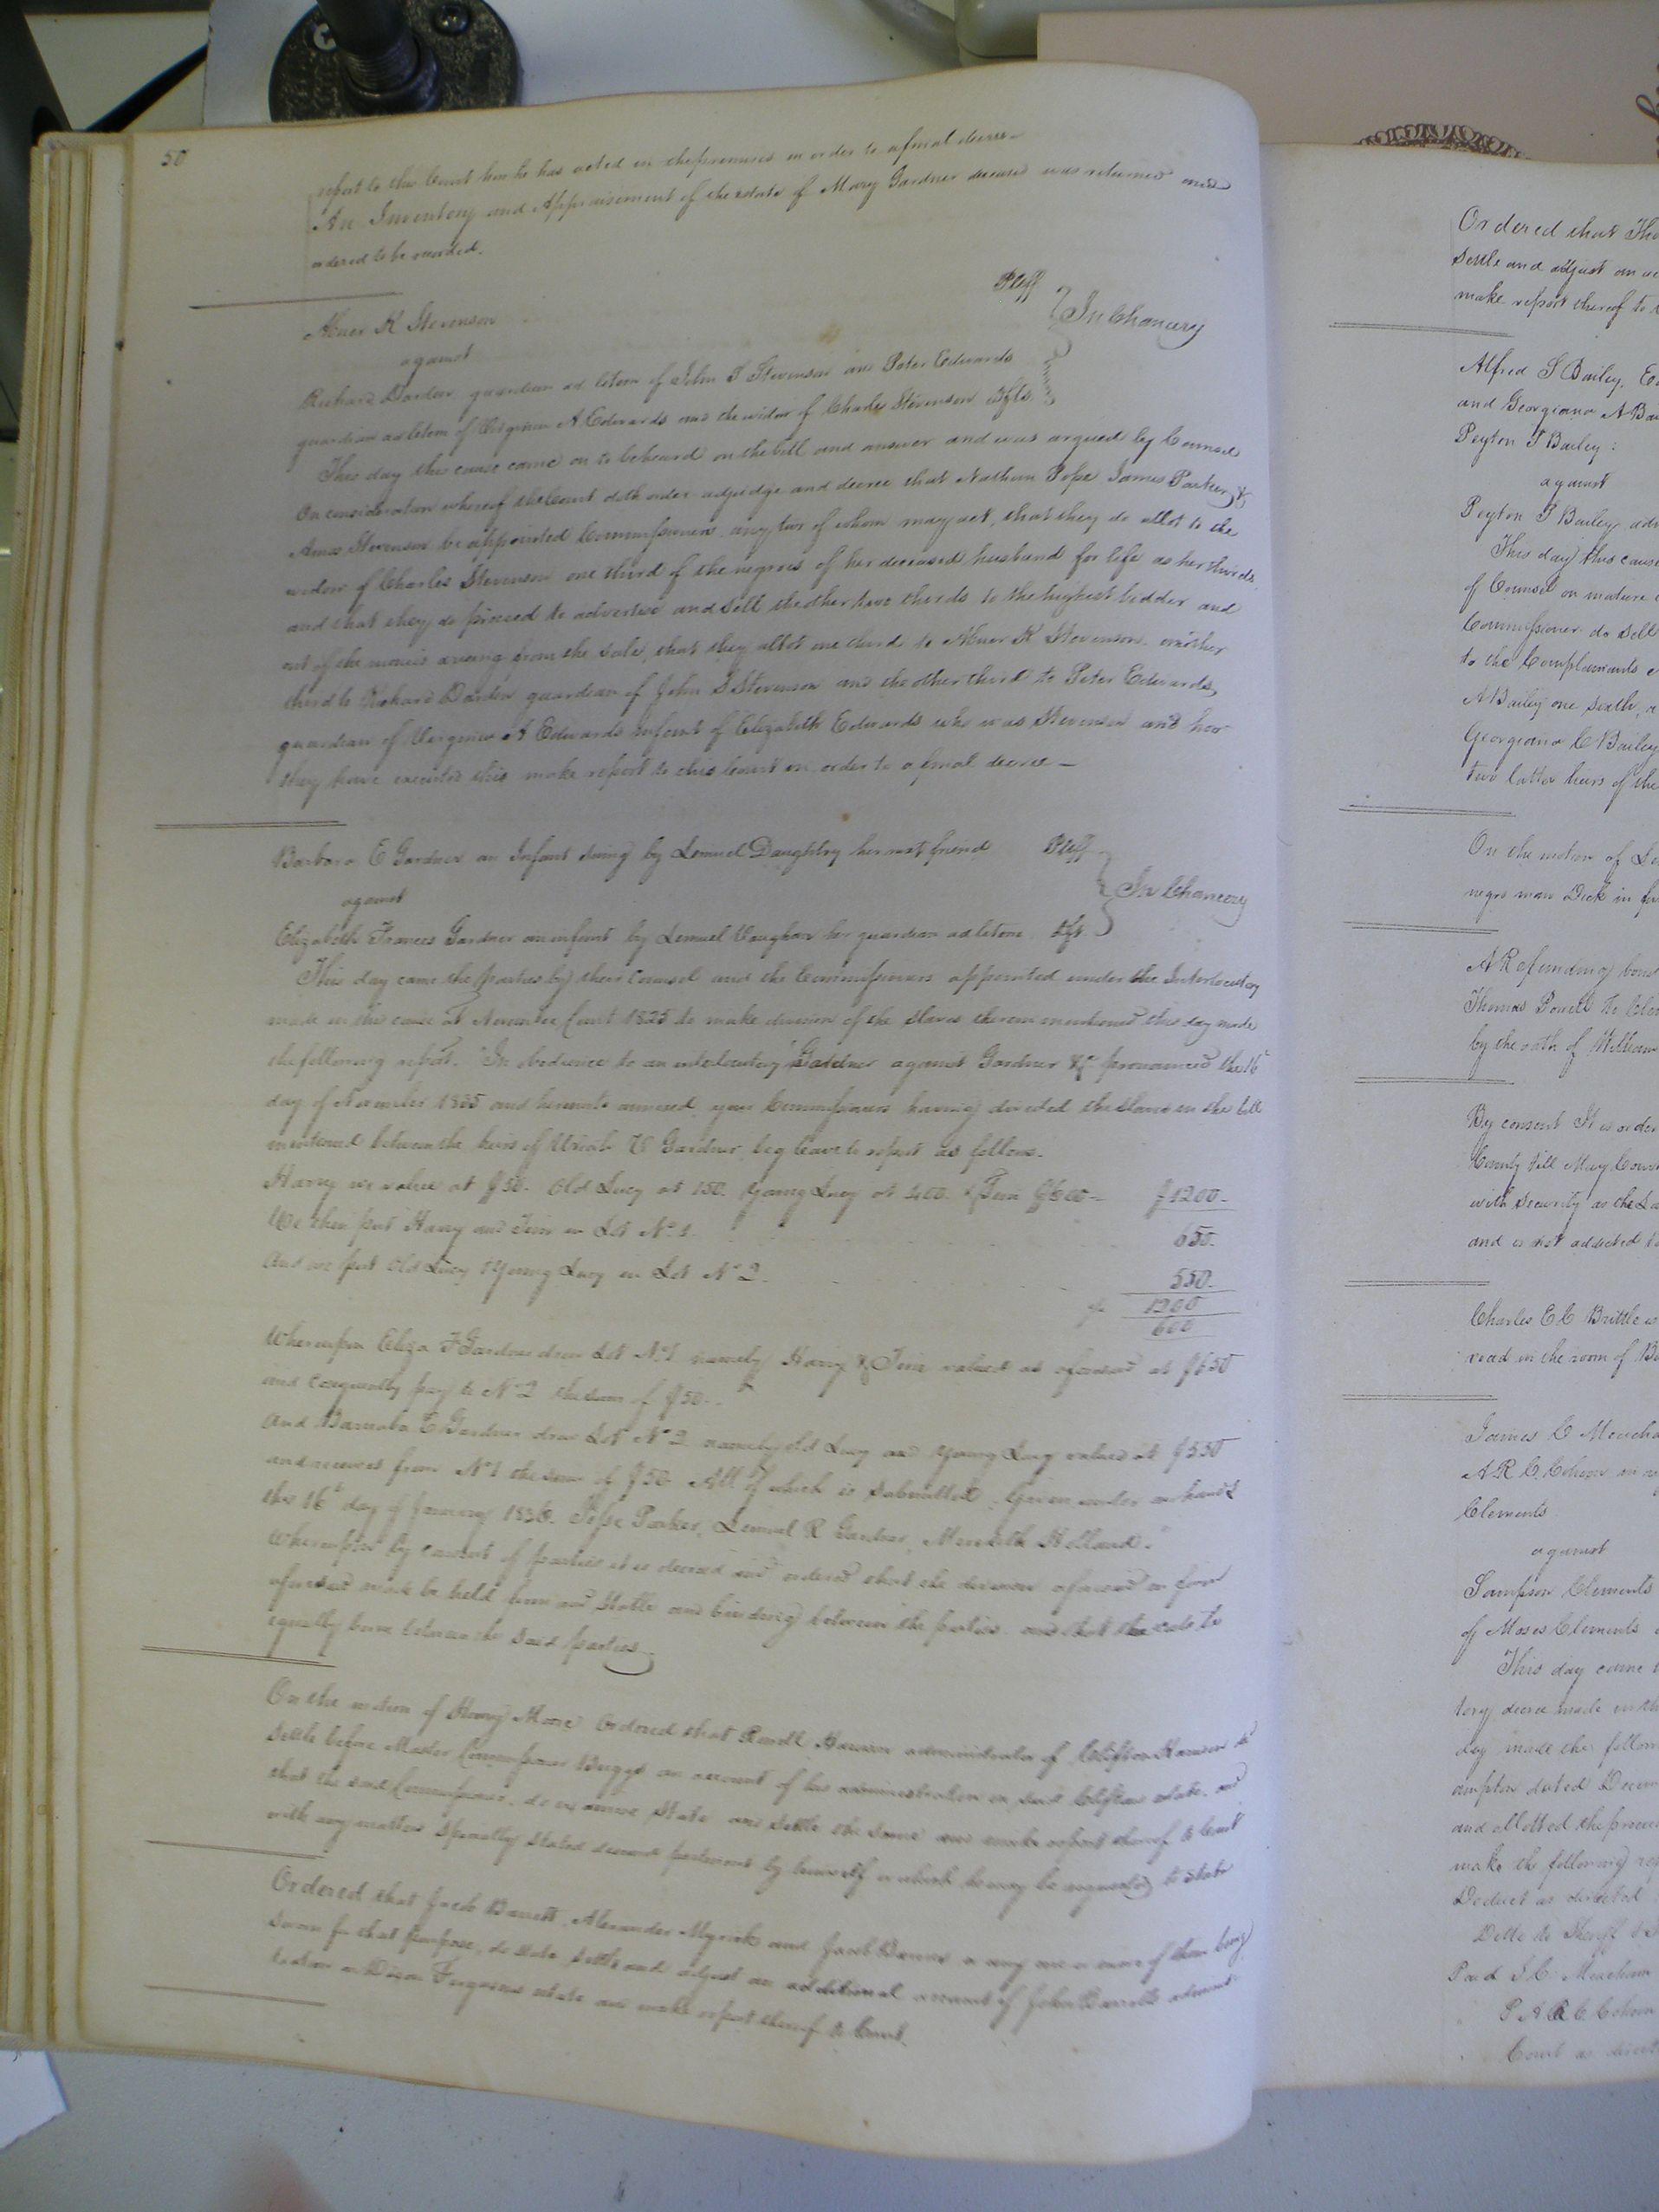 50
report to this Court how he has acted in the premises in order to a final decree—
An Inventory and Appraisement of the estate of Mary Gardner deceased was returned and
ordered to be recorded.
Abner K Stevenson Pltff
against
In Chancery
Richard Darden guardian ad litem of John S Stevenson and Peter Edwards
guardian ad litem of Virginia A Edwards and the widow of Charles Stevenson Dfts.
This day this cause came on to be heard on the bill and answer and was argued by Counsel
On consideration whereof the Court doth order adjudge and decree that Nathan Pope, James Parker, &
Amos Stevenson be appointed Commissioners any two of whom may act, that they do allot to the
widow of Charles Stevenson one third of the negroes of her deceased husband for life as her thirds
and that they do proceed to advertise and sell the other two thirds to the highest bidder and
out of the monies arising from the sale, that they allot one third to Abner K Stevenson another
third to Richard Darden guardian of John S Stevenson and the other third to Peter Edwards,
guardian of Virginia A Edwards infant of Elizabeth Edwards who was Stevenson and how
they have executed this make report to this Court in order to a final decree—
Barbara E Gardner an Infant suing by Lemuel Daughtry her next friend Pltff
against
In Chancery
Elizabeth Frances Gardner an infant by Lemuel Vaughan her guardian ad litem Dft.
This day came the parties by their Counsel and the Commissioners appointed under the Interlocutory
made in this cause at November Court 1835 to make division of the slaves therein mentioned this day made
the following report. "In obedience to an interlocutory Gardner against Gardner &c pronounced the 16th
day of November 1835 and hereunto annexed, your Commissioners having divided the slaves in the bill
mentioned between the heirs of Uriah V Gardner, beg leave to report as follows.
Harry we value at $50. Old Lucy at 150. Young Lucy at 400. & $600— $1200—
We then put Harry and in Lot No 1. 650.
And we put Old Lucy & Young Lucy in Lot No 2. 550.
1200
600
Whereupon Eliza F Gardner drew Lot No 1 namely Harry & valued as aforesaid at $650
and consequently pay to No 2 the sum of $50.
And Barbara E Gardner drew Lot No 2 namely old Lucy and Young Lucy valued at $550
and receives from No 1 the sum of $50. All of which is submitted. Given under our hands
this 16th day of January 1836. Parker, Lemuel R Gardner, Meredith Holland."
Whereupon by consent of parties it is decreed and ordered that the division aforesaid in form
aforesaid made be held firm and stable and binding between the parties and that the costs be
equally borne between the said parties.
On the motion of Henry Moore Ordered that Revell administrator of Clifton do
settle before Master Commissioner Beggs an account of his administration on said Cliftons estate. and
that the said Commissioner, do examine State and settle the same and make report thereof to Court
with any matters specially stated deemed pertinent by himself or which he may be required to state
Ordered that Jacob Barrett, Alexander Myrick and Jacob Barnes or any one or more of them being
sworn for that purpose, do state settle and adjust an additional account of John Barretts adminis-
tration on Ferguson estate and make report thereof to Court.
Ordered that
settle and adjust an
make report thereof to
Alfred S Bailey,
and Georgiana A
Peyton T Bailey:
against
Peyton T Bailey,
This day this cause
of Counsel on mature
Commissioner do sell
to the Complainants
A Bailey one sixth,
Georgiana C Bailey
two latter heirs of the
On the motion of
negro man Dick in
A Refunding bond
Thomas Powell
by the oath of William
By consent It is order
County till May Court
with security as the
and is not addicted
Charles E C Brittle
road in the room of
James C
A R C Cohoon
Clements
against
Sampson Clements
of Moses Clements
This day came
tory decree made in
day made the follow
ampton dated
and allotted the
make the following
Deduct as directed
Debts to Sheriff
Paid J C Meacham
P A R C Cohoon
Court as